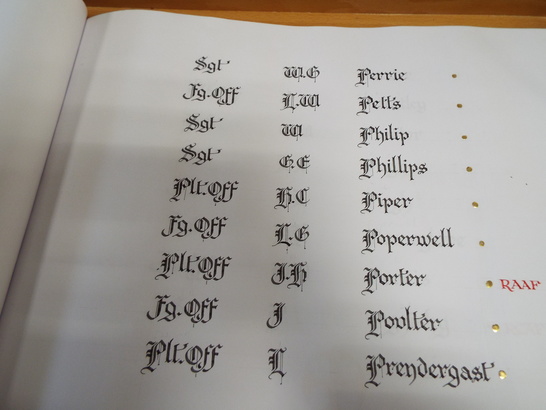 Sgt W.G Perrie
Fg.Off L.W Petts
Sgt W Philip
Sgt G.E Phillips
Plt.Off H.C Piper
Fg.Off L.G Poperwell
Plt.Off J.H Porter RAAF
Fg.Off J Poulter
Plt.Off L Prendergast